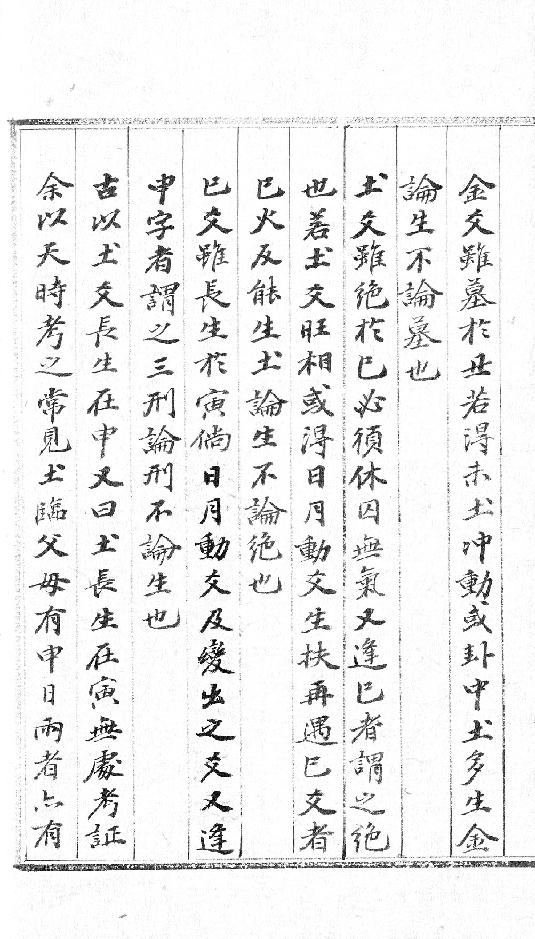 金爻雖墓於丑若得未土冲動或卦中土多生金
論生不論墓也
土爻雖絕於巳必須休囚無氣又逢巳者謂之絕
也若土爻旺相或得日月動爻生扶再遇巳爻者
巳火反能生土論生不論絕也
巳爻雖長生於寅倘日月動爻及變出之爻又逢
申字者謂之三刑論刑不論生也
古以土爻長生在申又曰土長生在寅無處考証
余以天時考之常見土臨父母有申日雨者亦有